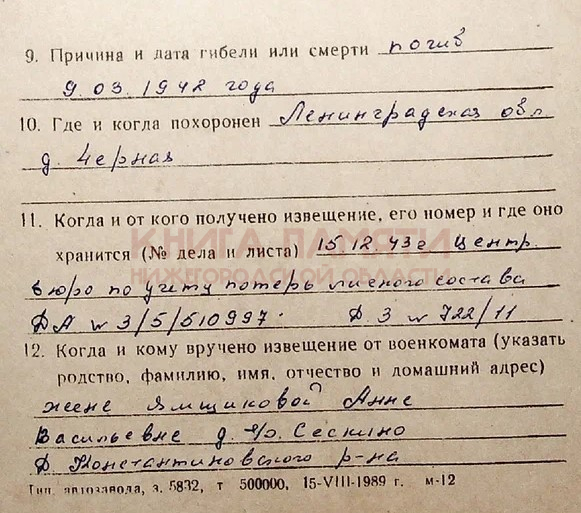 9. Причина и дата гибели или смерти погиб
9.03.1942 года
10. Где и когда похоронен Ленинградская обл
д. Черная
11. Когда и от кого получено извещение, его номер и где оно
хранится (№ дела и листа) 15.12.43г Центр.
КНИГА ПАМЯТИ
НИЖЕГОРОДСКОЙ ОБЛАСТИ
бюро по учету потерь личного состава
ДА № 3/5/510997. Д.3 № 722/11
12. Когда и кому вручено извещение от военкомата (указать
родство, фамилию, имя, отчество и домашний адрес)
жене Ямщиковой Анне
Васильевне д. Сескино
Д. Константиновского р-на
Тип. автозавода, з. 5832, т 500000, 15-VIII-1989 г. м-12